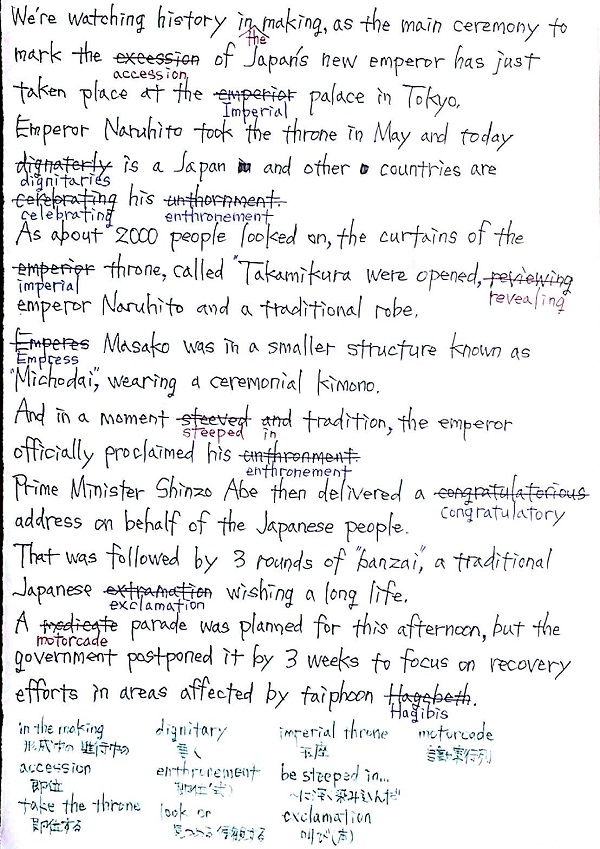 We're watching history in the making, as the main ceremony to
mark the excession accession of Japan's new emperor has just
taken place at the emperior Imperial palace in Tokyo.
Emperor Naruhito took the throne in May and today
dignaterly dignitaries is a Japan and other countries are
celebrating his unthornment. enthronement
As about 2000 people looked on, the curtains of the
emperior imperial throne, called "Takamikura were opened, reviewing revealing
emperor Naruhito and a traditional robe.
Emperes Empress Masako was in a smaller structure known as
"Michodai", wearing a ceremonial kimono.
And in a moment steeved steeped and in tradition, the emperor
officially proclaimed his unthronment. enthronement
Prime Minister Shinzo Abe then delivered a congratulatorious congratulatory
address on behalf of the Japanese people.
That was followed by 3 rounds of "banzai", a traditional
Japanese extramation exclamation wishing a long life.
A motorcade parade was planned for this afternoon, but the
government postponed it by 3 weeks to focus on recovery
efforts in areas affected by taiphoon Hagebeth. Hagibis
in the making dignitary imperial throne motorcade
形成中の 進行中の 玉座
accession enthronement be steeped in...
即位 即位(式) ~に深く染み込んだ
take the throne look on exclamation
即位する 見つめる 傍観する 叫び(声)